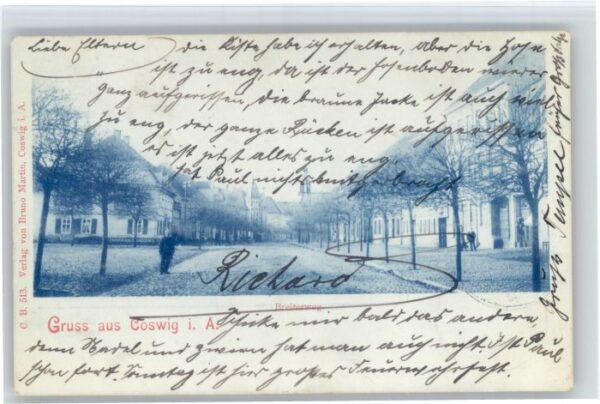 Liebe Eltern
die Kiste habe ich erhalten, aber die Hose
ist zu eng, da ist der Hosenboden wieder
ganz aufgerissen, die braune Jacke ist auch viel
zu eng, der ganze Rücken ist aufgerissen
es ist jetzt alles zu eng.
hat Paul nichts mitgebracht
Richard
Breiteweg.
Gruss aus Coswig i. A.
Schicke mir bald das andere,
denn Nadel und Zwirn hat man auch nicht. Ist Paul
schon fort. Sonntag ist hier großes Feuerwehrfest.
C. B. 513. Verlag von Bruno Martin, Coswig i. A.
Gruß Tempel